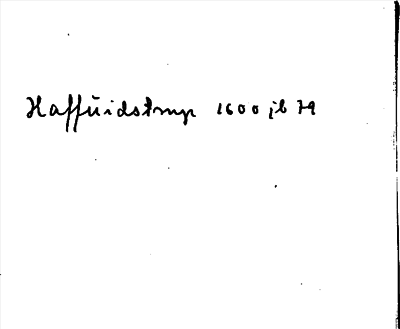 Haffŭidstrup 1600 jb 79